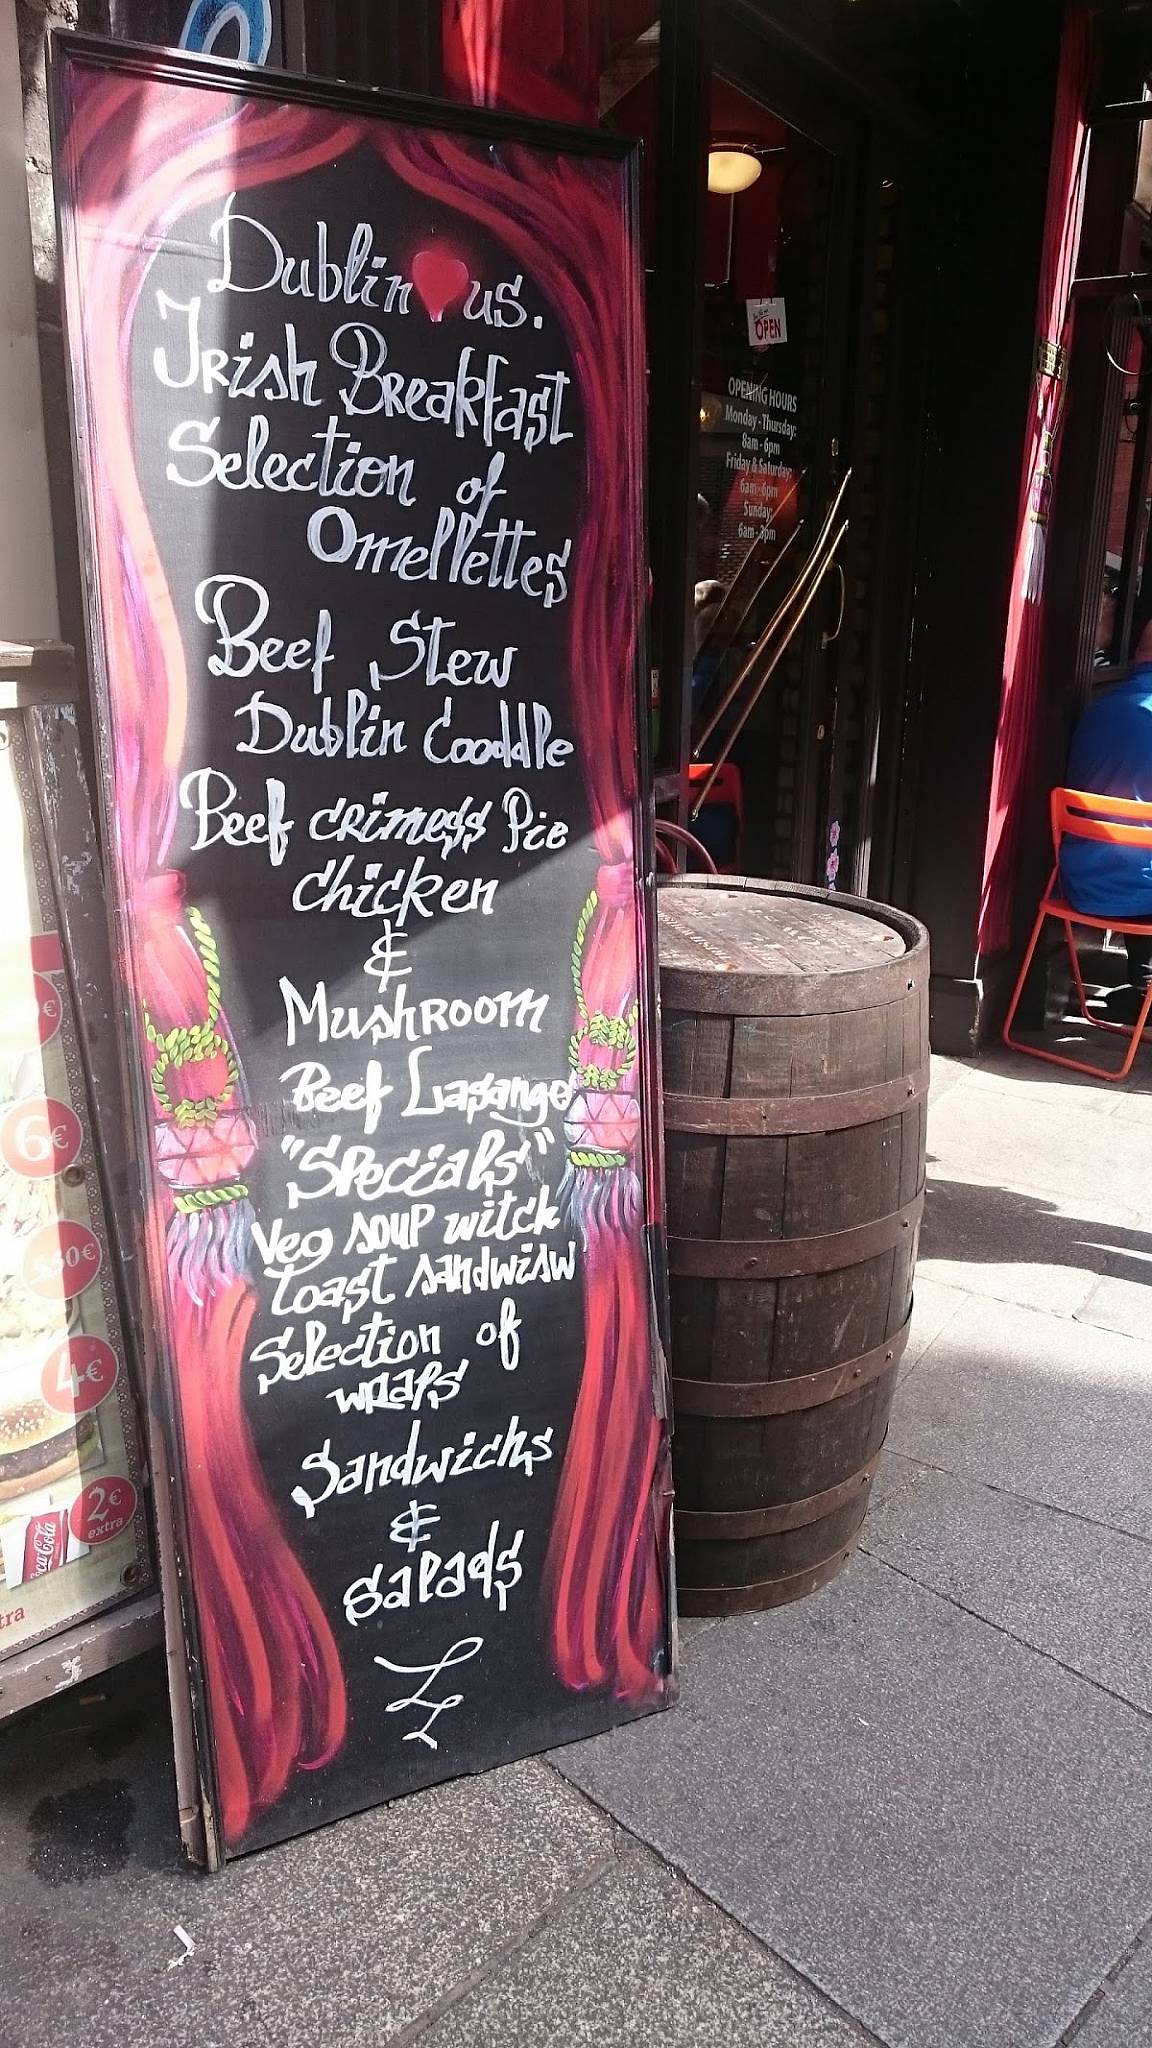 Dublin us.
Irish Breakfast
Selection of
Omellettes
Beef Stew
Dublin Cooddle
Beef crimess Pie
Chicken
&
Mushroom
Beef Lasange
"Specials"
Veg soup witch
toast sandwisw
Selection of
wraps
Sandwichs
&
Salads
OPEN
OPENING HOURS
Monday - Thursday:
8am - 6pm
Friday & Saturday:
6am - 6pm
Sunday:
6am - 3pm
6€
5.50€
4€
2€
extra
Coca-Cola